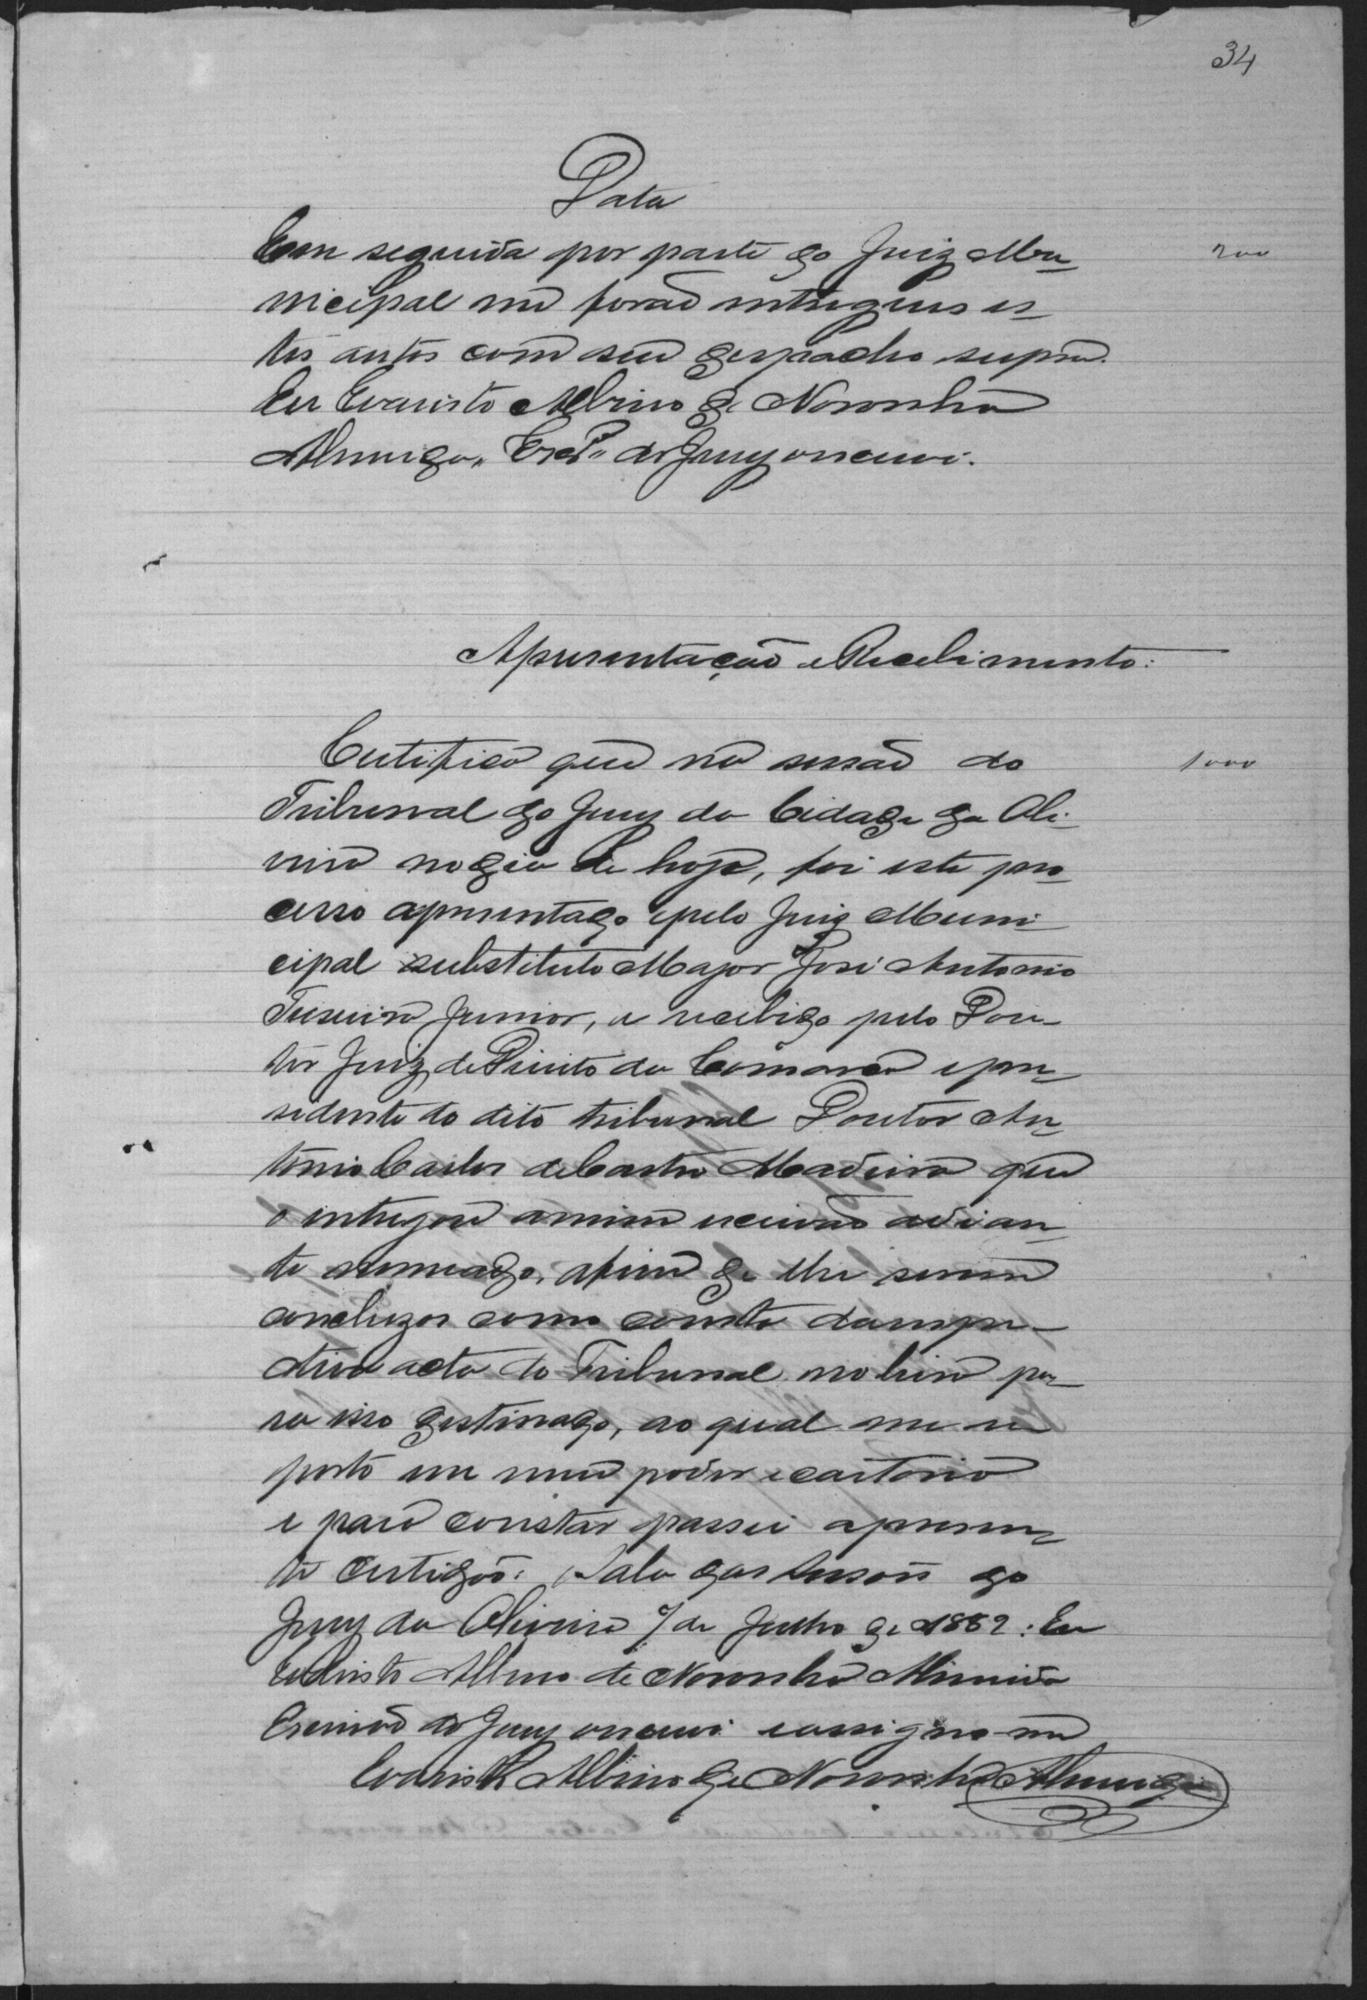 34
Data
Em seguida por parte do Juiz Mu-
nicipal me forão entregues es-
tes autos com seu despacho supra.
Eu Evaristo Albino de Noronha
Almeida, Escr.m do Jury o escrevi.
200
Apresentação e Recebimento:
Certifico que na sessão do
1000
Tribunal do Jury da Cidade da Oli-
veira no dia de hoje, foi este pro-
cesso apresentado pelo Juiz Muni-
cipal substituto Major José Antonio
Teixeira Junior, e recebido pelo Dou-
tor Juiz de Direito da Comarca e pre-
sidente do dito tribunal Doutor An-
tonio Carlos de Castro Madeira que
o entregou a mim escrivão adian-
te nomeado, afim de lhe serem
concluzos como consta da respe-
ctiva acta do Tribunal no livro pa-
ra isso destinado, ao qual me re
porto em meu poder e cartorio
e para constar passei a presen-
te certidão. Sala das sessões do
Jury da Oliveira 7 de Julho de 1882: Eu
Evaristo Albino de Noronha Almeida
Escrivão do Jury o escrevi e assigno-me
Evaristo Albino de Noronha Almeida